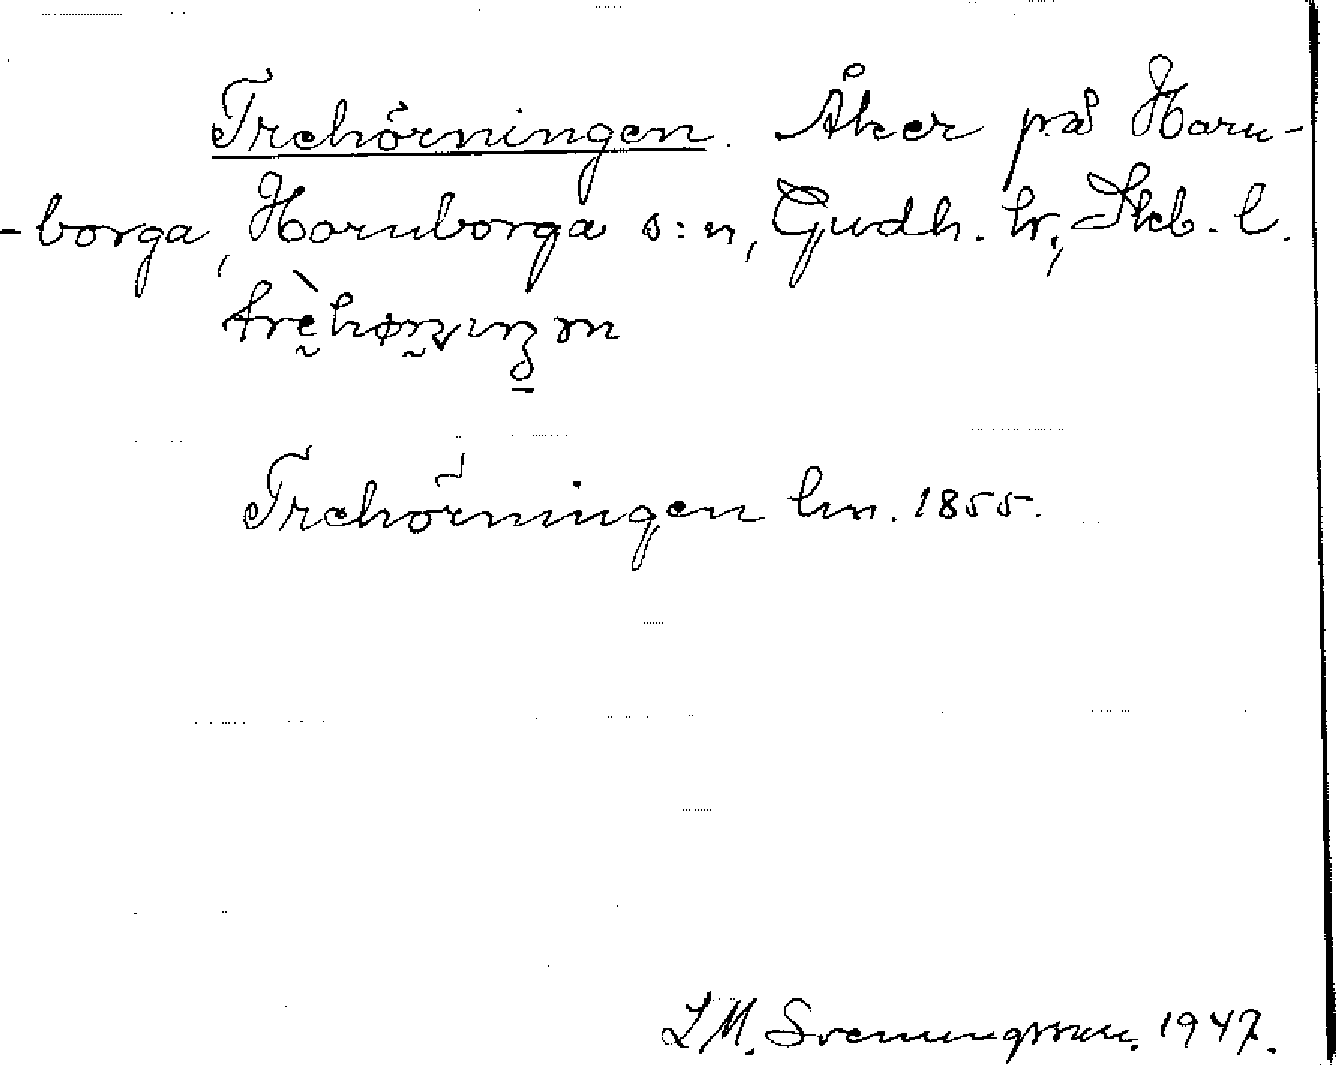 Trehörningen. Åker på Horn-
-borga, Hornborga s:n, Gudh. hr, Skb. l.
Trehörningen lm. 1855.
L M. Svenungsson. 1947.